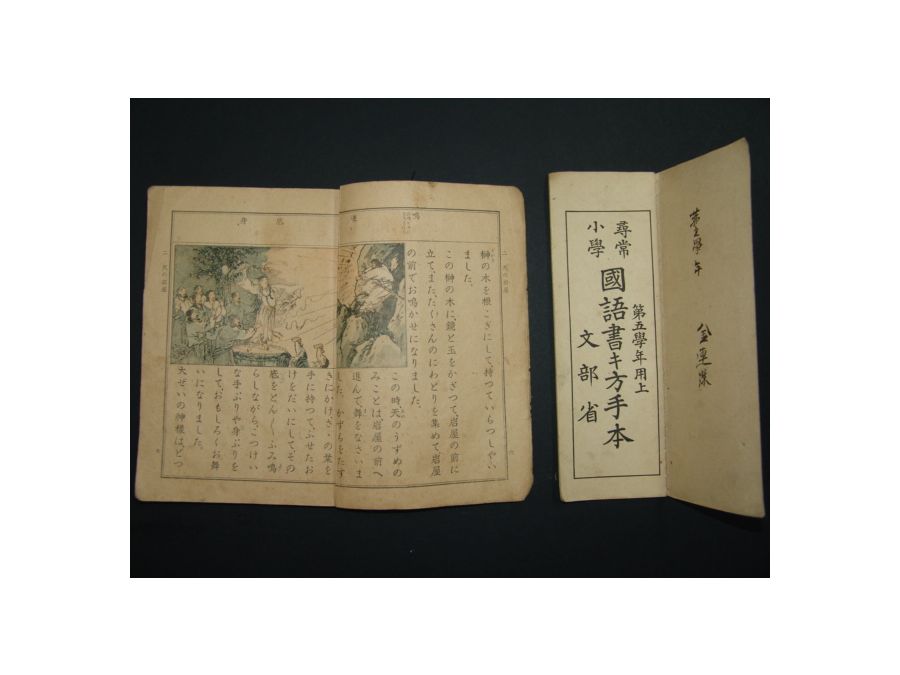 鳴 進 底 身
二 天の岩屋
榊の木を根こぎにして、持つていらつしやい
ました。
この榊の木に、鏡と玉をかざつて、岩屋の前に
立て、また、たくさんのにわとりを集めて、岩屋
の前でお鳴かせになりました。
この時、天のうずめの
みことは、岩屋の前へ
進んで、舞をなさいま
した。かずらをたす
きにかけ、さゝの葉を
手に持つて、ふせたお
けをだいにしてその
底をとん〳〵ふみ鳴
らしながら、こつけい
な手ぶりや身ぶりを
して、おもしろくお舞
いになりました。
大ぜいの神様は、どつ
二 天の岩屋
六
尋常
小學
國語書キ方手本
第五學年用上
文部省
第五學年